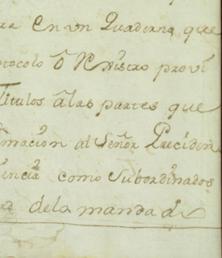 en vn Quaderno que
tocolo ô Rexistro provi
Titulos â las partes que
mación al Señor Preciden
como Subordinados
dela manda